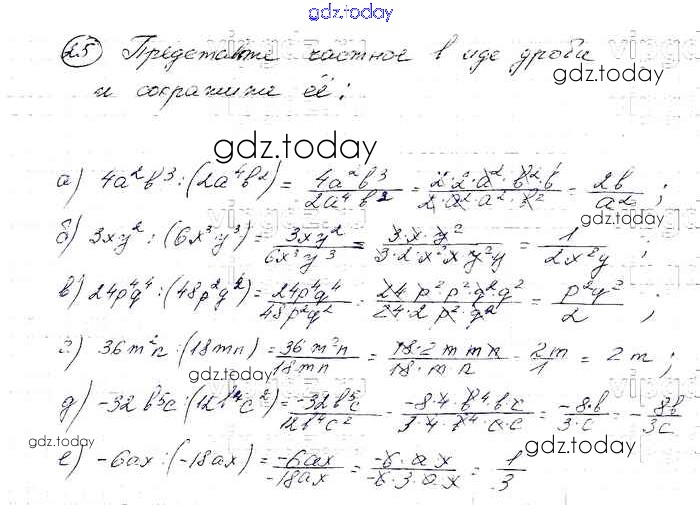 gdz.today
25 Представьте частное в виде дроби
и сократите её:
gdz.today
gdz.today
а) 4a²b³:(2a⁴b²) = 4a²b³/2a⁴b² = 2·2·a²·b²·b/2·a²·a²·b² = 2b/a²;
б) 3xy²:(6x³y³) = 3xy²/6x³y³ = 3·x·y²/3·2·x²x y²y = 1/2x²y;
gdz.today
в) 24p⁴q⁴:(48p²q²) = 24p⁴q⁴/48p²q² = 24p²p²·q²q²/24·2p²·q² = p²q²/2;
г) 36m²n:(18mn) = 36m²n/18mn = 18·2mmn/18·mn = 2m/1 = 2m;
gdz.today
gdz.today
д) -32b⁵c:(12b⁴c²) = -32b⁵c/12b⁴c² = -8·4·b⁴b·c/3·4·b⁴·c·c = -8·b/3·c = -8b/3c
gdz.today
gdz.today
е) -6ax:(-18ax) = -6ax/-18ax = -6·a·x/-6·3·a·x = 1/3
gdz.today